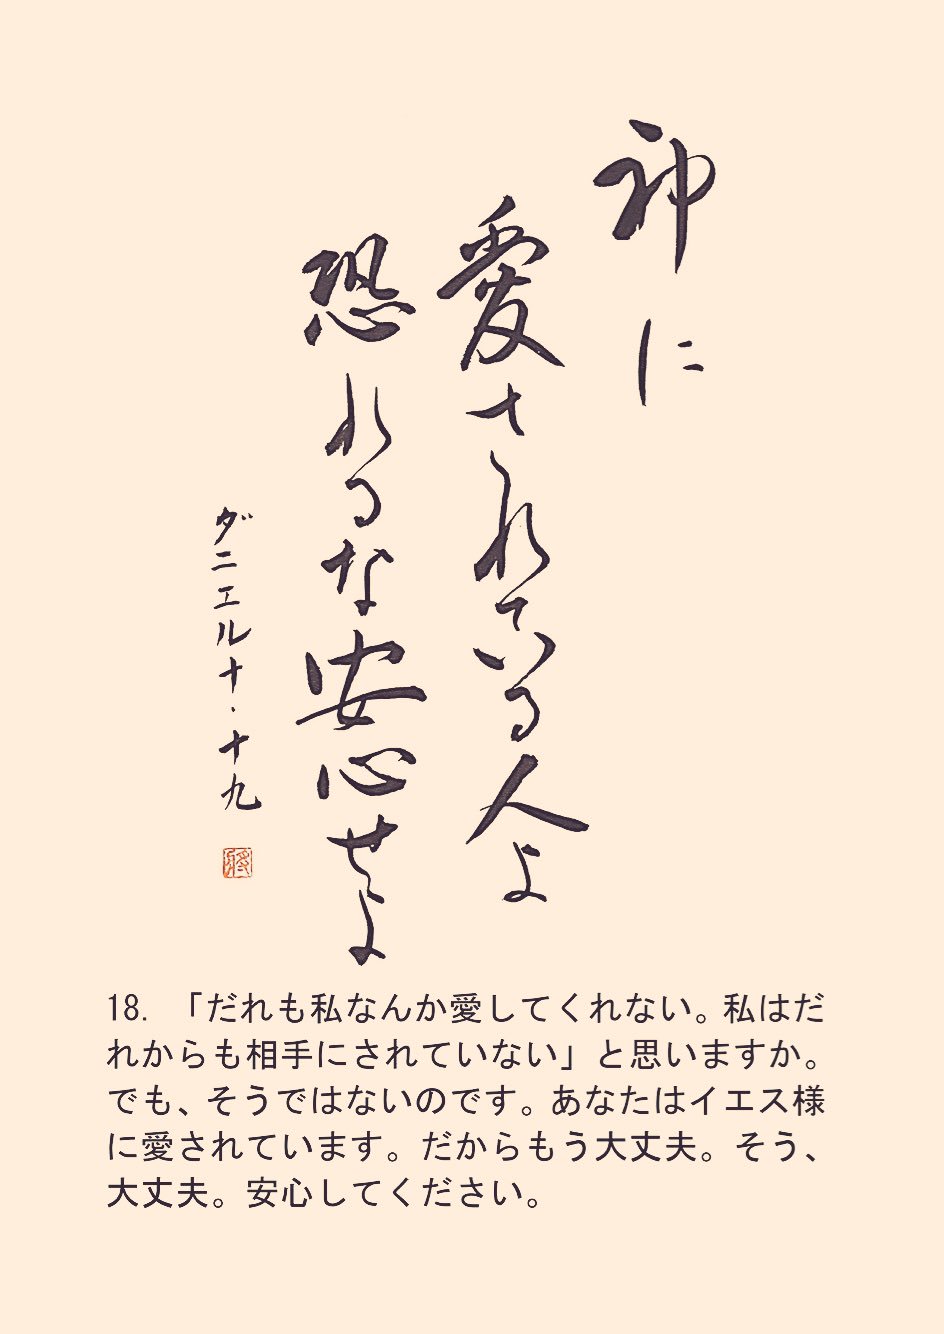 神に
愛されている人よ
恐れるな安心せよ
ダニエル十・十九
18. 「だれも私なんか愛してくれない。私はだ
れからも相手にされていない」と思いますか。
でも、そうではないのです。あなたはイエス様
に愛されています。だからもう大丈夫。そう、
大丈夫。安心してください。